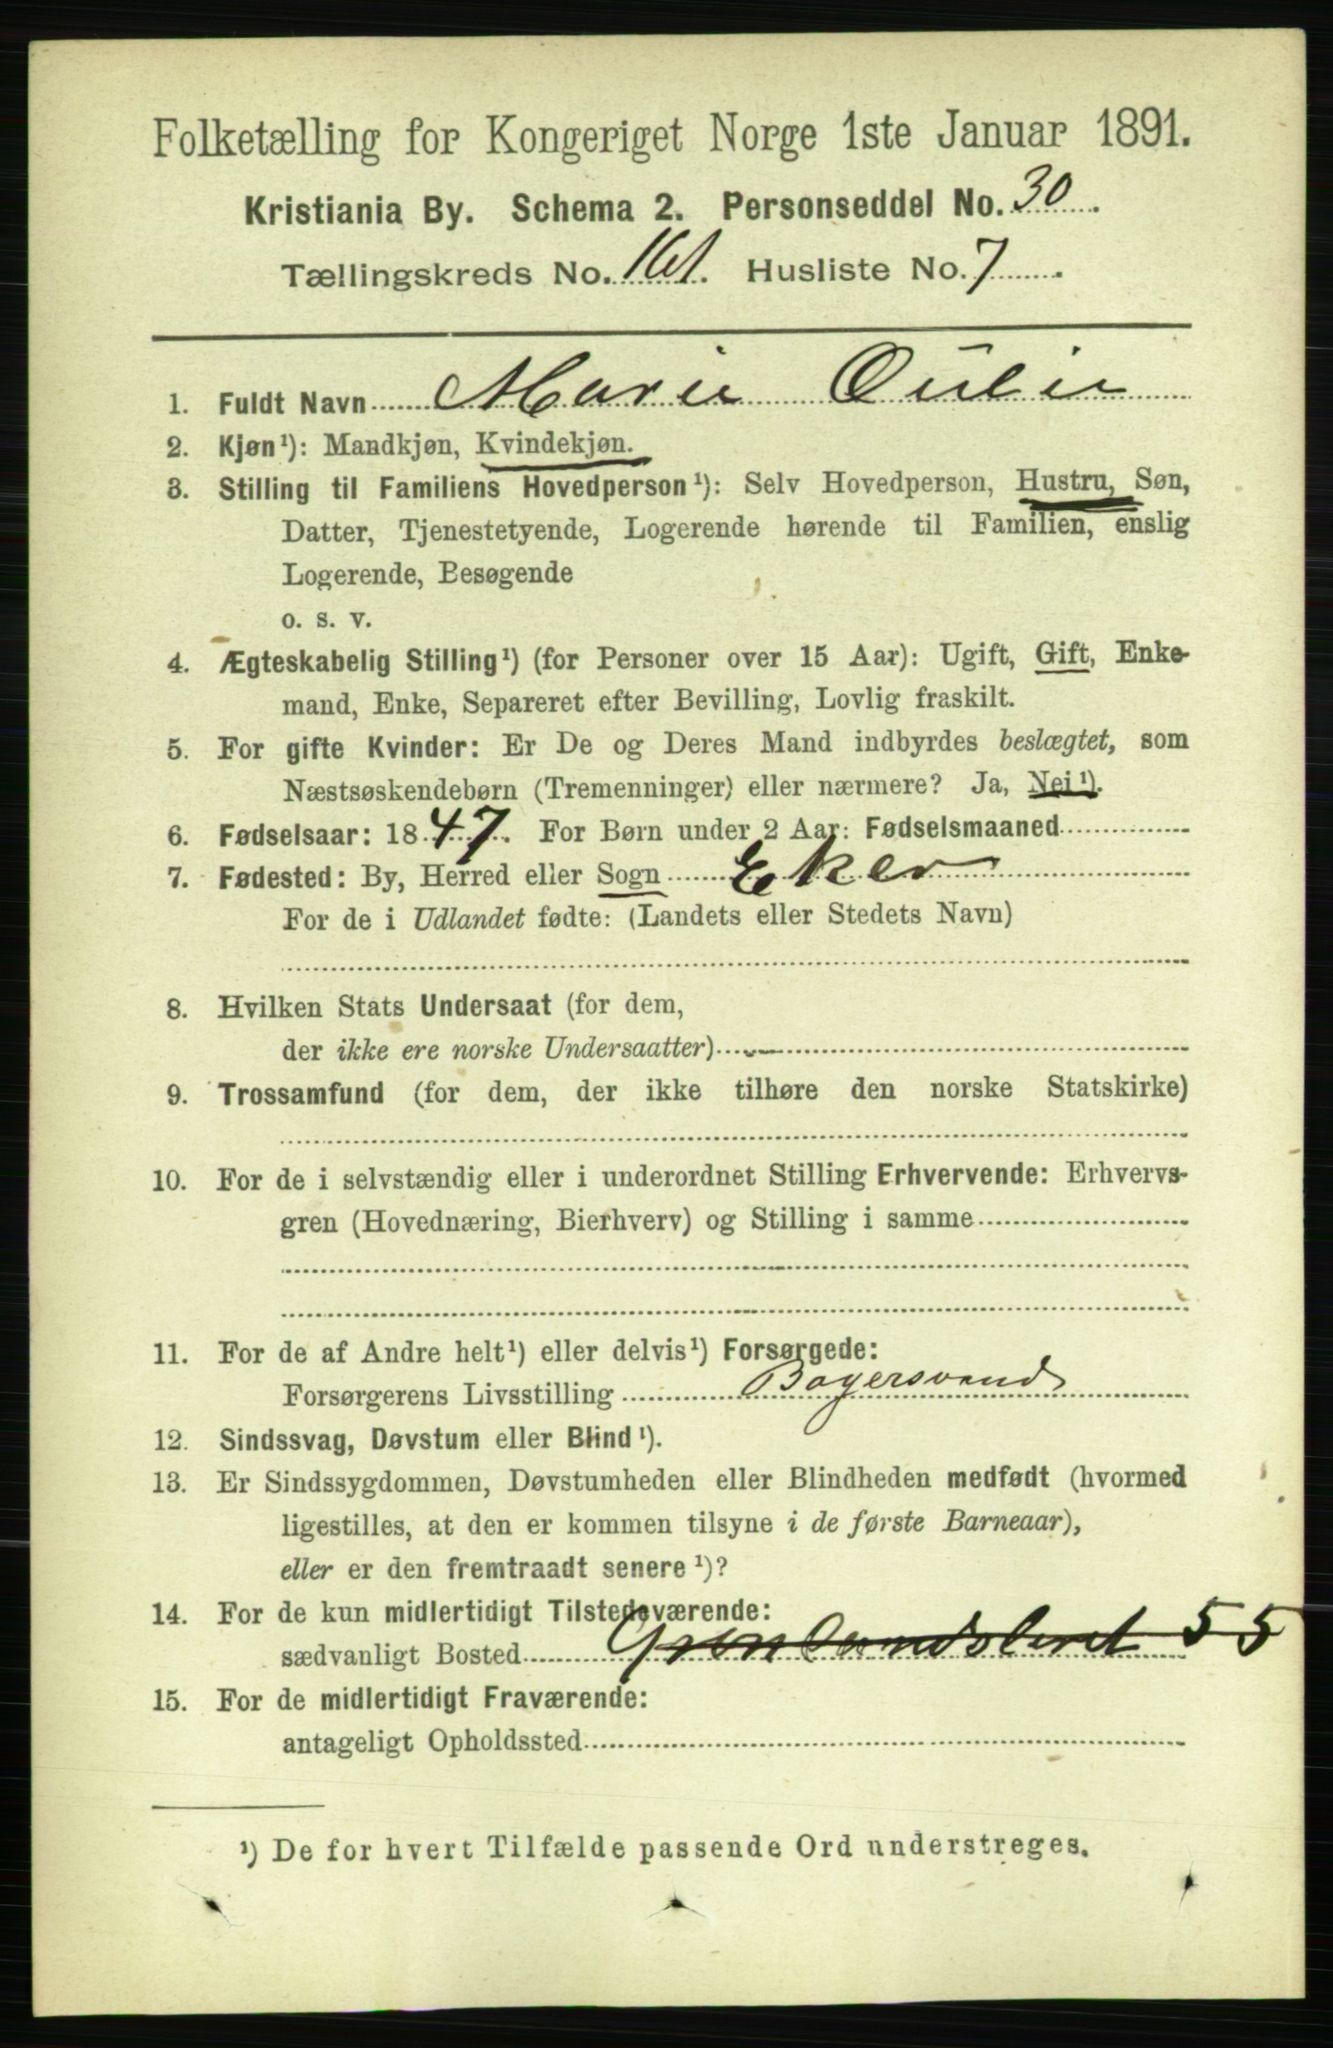 Folketælling for Kongeriget Norge 1ste Januar 1891.
Kristiania By. Schema 2. Personseddel No. 30.
Tællingskreds No. 161. Husliste No. 7.
1. Fuldt Navn Marie
2. Kjøn¹): Mandkjøn, Kvindekjøn.
3. Stilling til Familiens Hovedperson¹): Selv Hovedperson, Hustru, Søn,
Datter, Tjenestetyende, Logerende hørende til Familien, enslig
Logerende, Besøgende
o. s. v.
4. Ægteskabelig Stilling¹) (for Personer over 15 Aar): Ugift, Gift, Enke-
mand, Enke, Separeret efter Bevilling, Lovlig fraskilt.
5. For gifte Kvinder: Er De og Deres Mand indbyrdes beslægtet, som
Næstsøskendebørn (Tremenninger) eller nærmere? Ja, Nei¹).
6. Fødselsaar: 1847. For Børn under 2 Aar: Fødselsmaaned
7. Fødested: By, Herred eller Sogn Eker
For de i Udlandet fødte: (Landets eller Stedets Navn)
8. Hvilken Stats Undersaat (for dem,
der ikke ere norske Undersaatter)
9. Trossamfund (for dem, der ikke tilhøre den norske Statskirke)
10. For de i selvstændig eller i underordnet Stilling Erhvervende: Erhvervs-
gren (Hovednæring, Bierhverv) og Stilling i samme
11. For de af Andre helt¹) eller delvis¹) Forsørgede:
Forsørgerens Livsstilling Bagersvend
12. Sindssvag, Døvstum eller Blind¹).
13. Er Sindssygdommen, Døvstumheden eller Blindheden medfødt (hvormed
ligestilles, at den er kommen tilsyne i de første Barneaar),
eller er den fremtraadt senere¹)?
14. For de kun midlertidigt Tilstedeværende:
sædvanligt Bosted Grønlandsleret 55
15. For de midlertidigt Fraværende:
antageligt Opholdssted
¹) De for hvert Tilfælde passende Ord understreges.